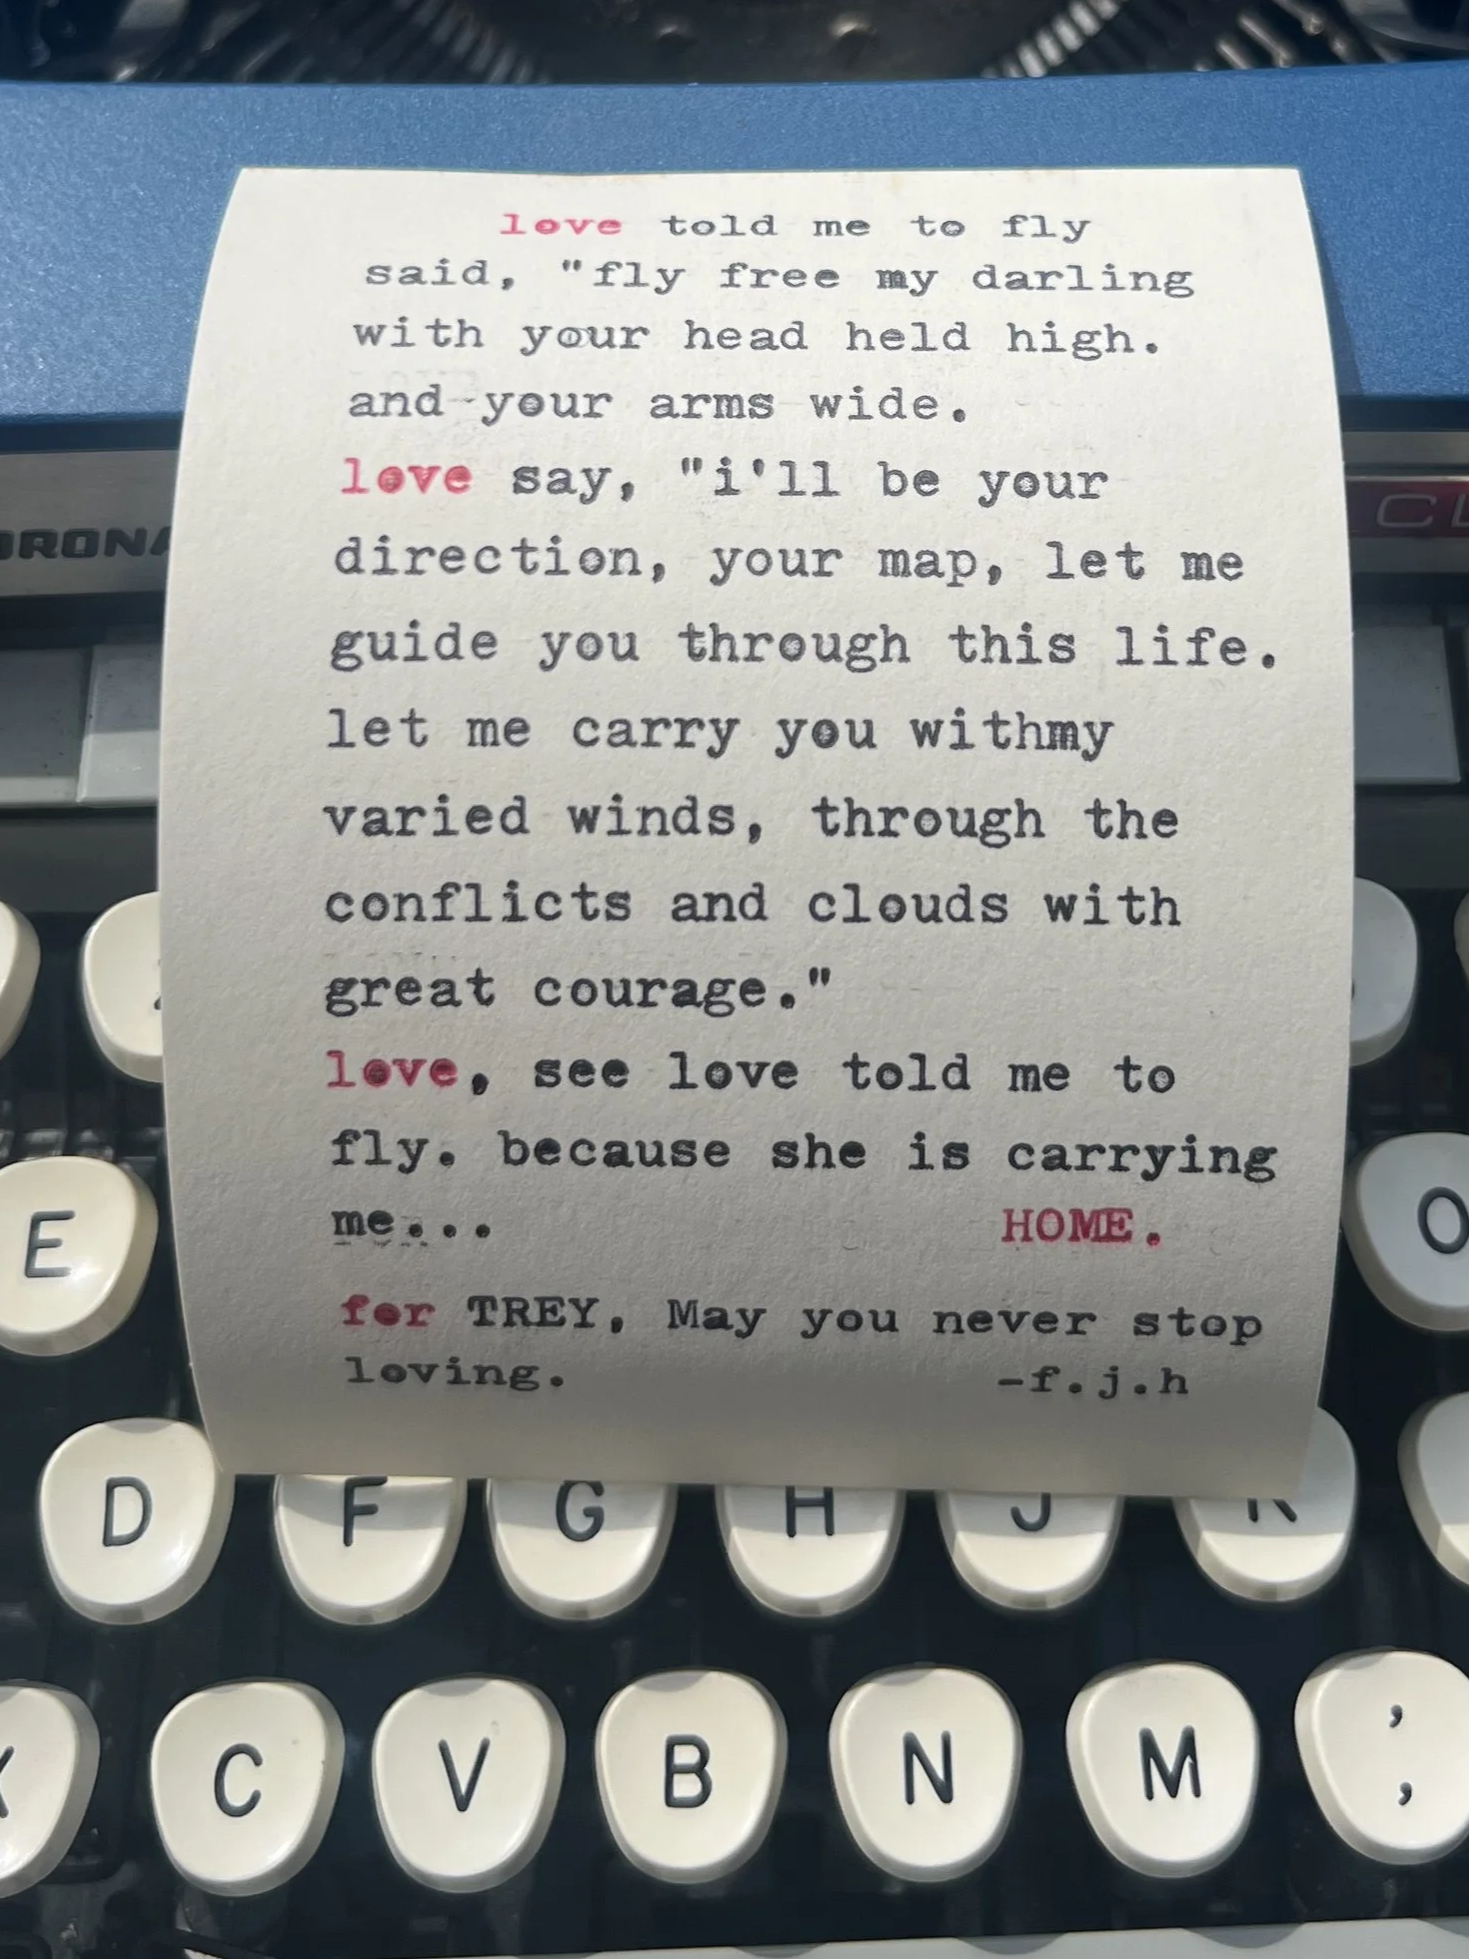 love told me to fly
said, "fly free my darling
with your head held high.
and your arms wide.
love say, "i'll be your
direction, your map, let me
guide you through this life.
let me carry you withmy
varied winds, through the
conflicts and clouds with
great courage."
love, see love told me to
fly. because she is carrying
me... HOME.
for TREY, May you never stop
loving. -f.j.h
E O
D F G H J K
C V B N M , ,